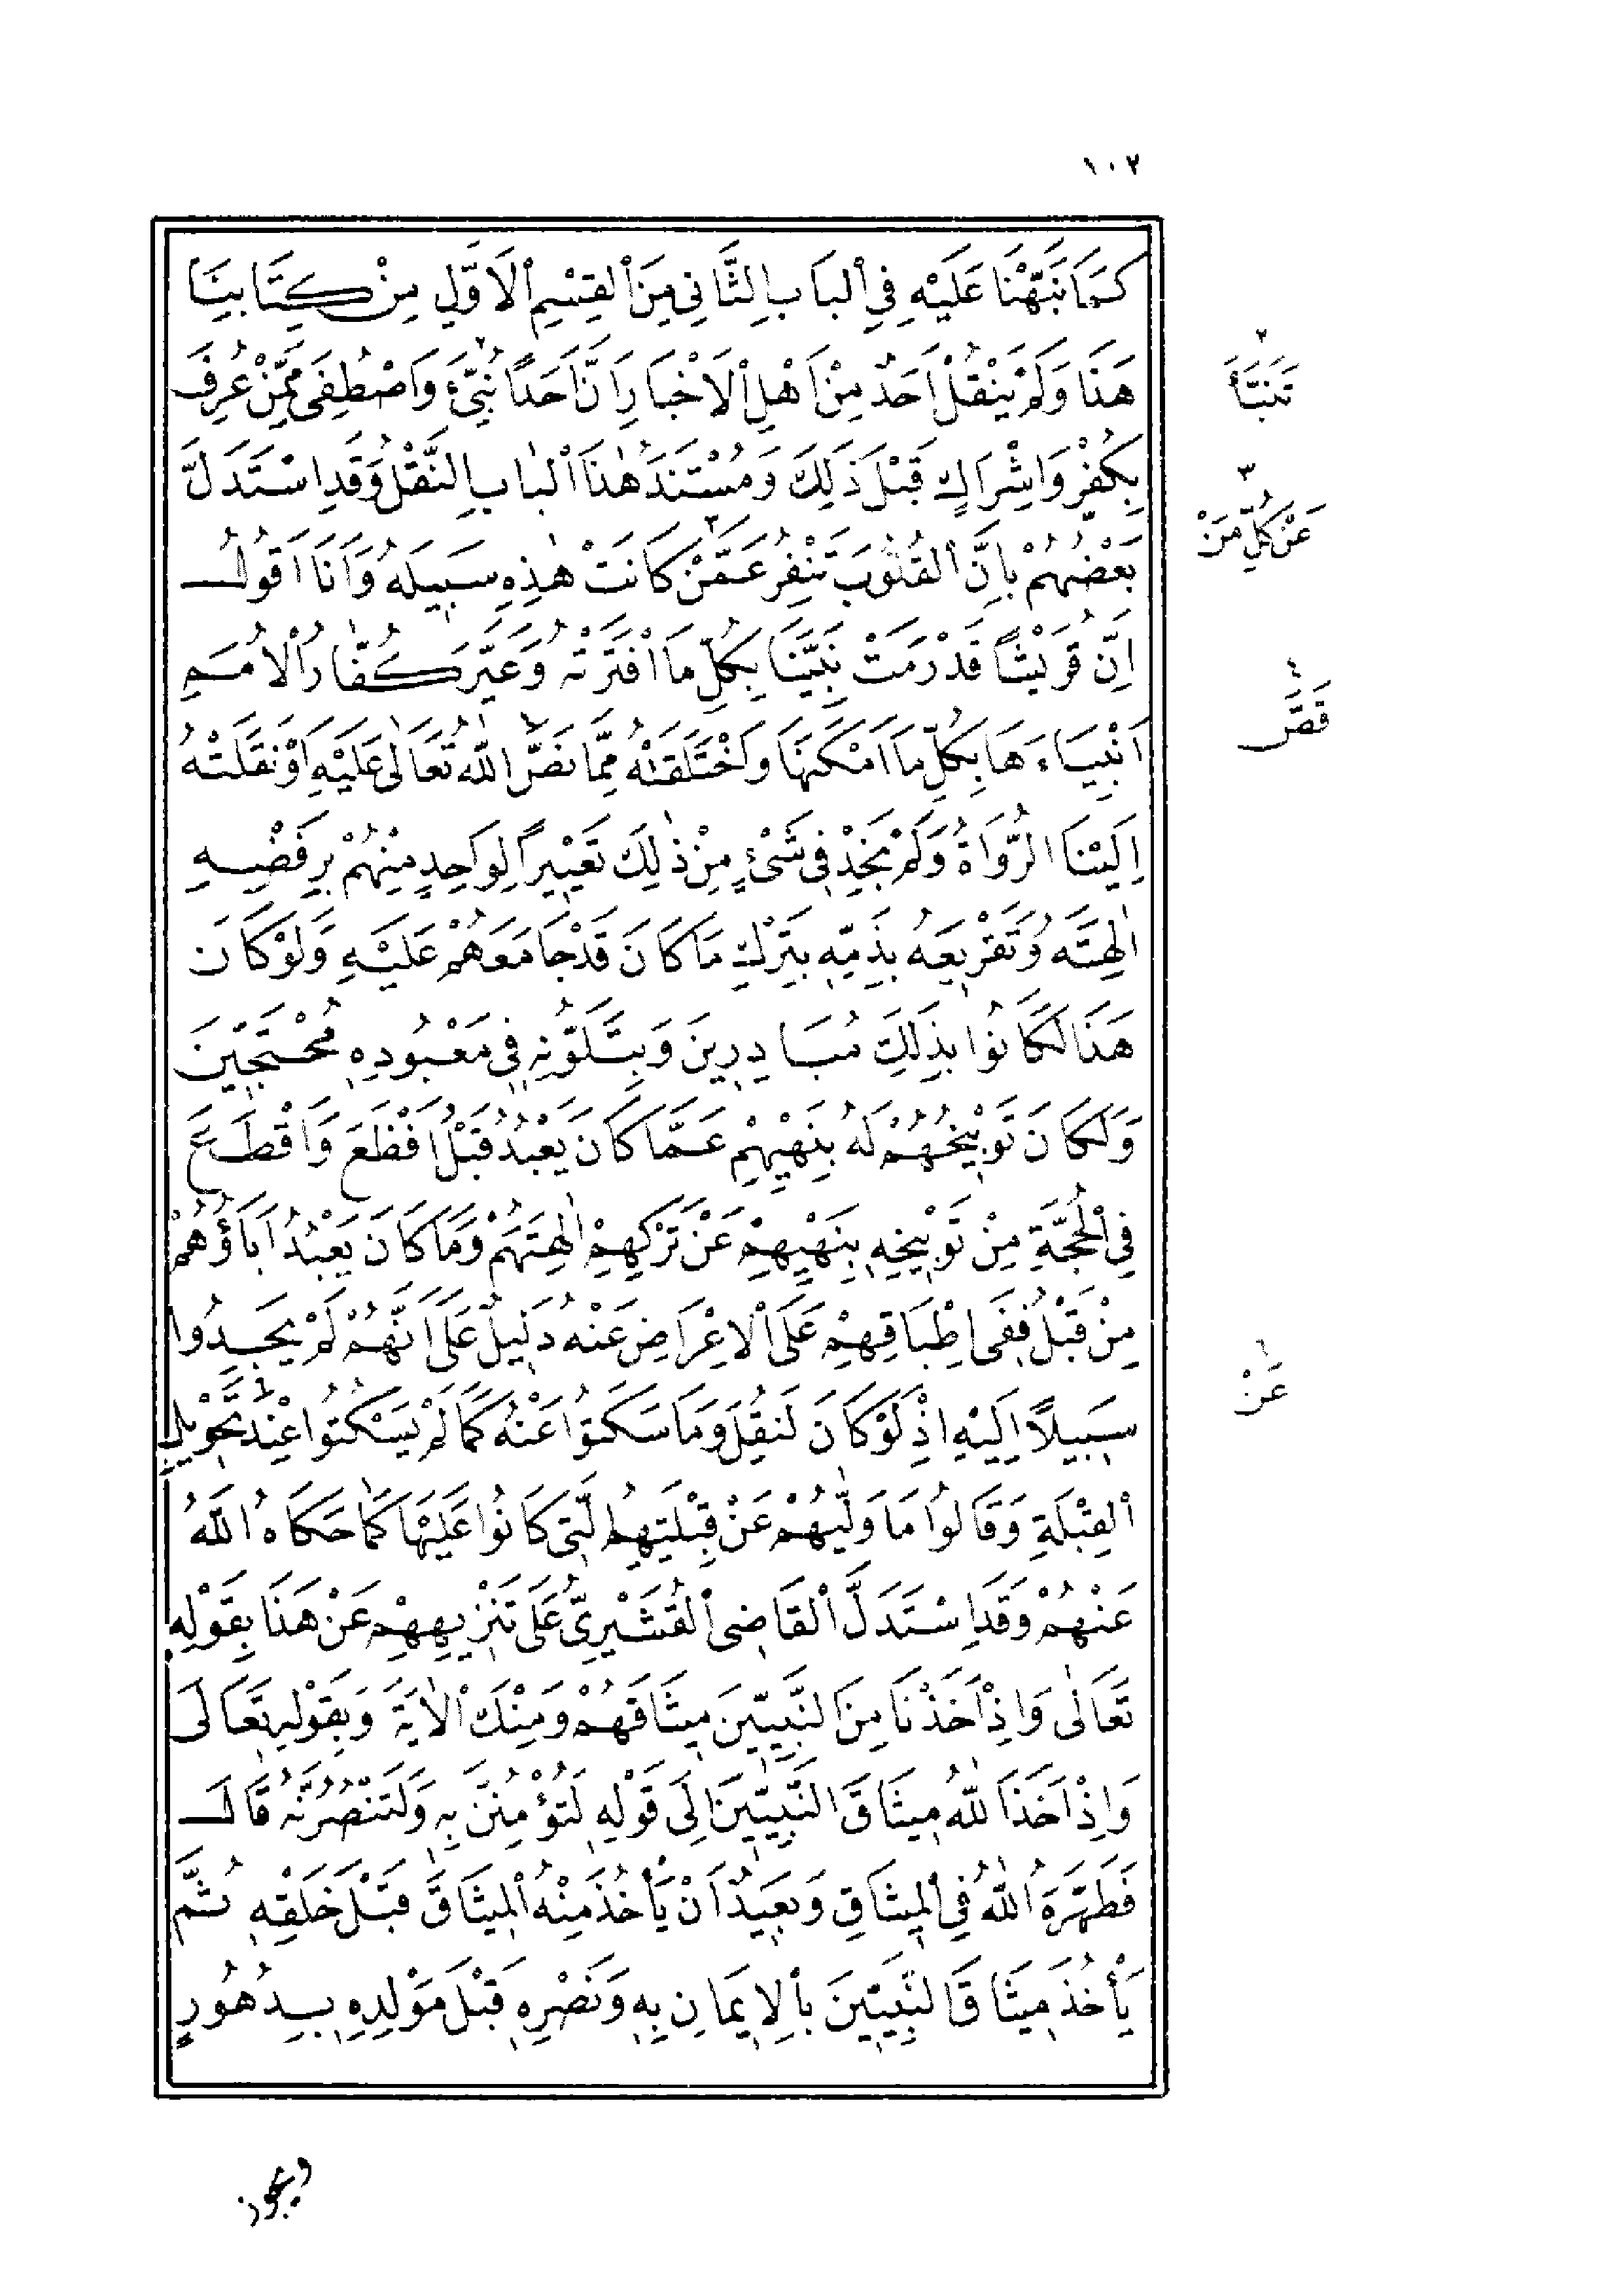 ١٠٢
كَمَا نَبَّهْنَا عَلَيْهِ فِي الْبَابِ الثَّانِى مِنَ الْقِسْمِ الْاَوَّلِ مِنْ كِتَابِنَا
هَذَا وَلَمْ يَنْقُلْ اَحَدٌ مِنْ اَهْلِ الْاَخْبَارِ اَنَّ اَحَدًا نُبِّئَ ٢ وَاصْطُفِىَ مِمَّنْ عُرِفَ
بِكُفْرٍ وَاِشْرَاكٍ قَبْلَ ذَلِكَ وَمُسْتَنَدُ هٰذَا الْبَابِ النَّقْلُ وَقَدِ اسْتَدَلَّ
بَعْضُهُمْ بِاَنَّ الْقُلُوبَ تَنْفِرُ عَمَّنْ ٣ كَانَتْ هٰذِهِ سَبِيلَهُ وَاَنَا اَقُولُ
اِنَّ قُرَيْشًا قَدْ رَمَتْ نَبِيَّنَا بِكُلِّ مَا افْتَرَتْهُ وَعَيَّرَ كُفَّارُ الْاُمَمِ
اَنْبِيَاءَهَا بِكُلِّ مَا اَمْكَنَهَا وَاخْتَلَقَتْهُ مِمَّا نَصَّ ٤ اللّٰهُ تَعَالٰى عَلَيْهِ اَوْ نَقَلَتْهُ
اِلَيْنَا الرُّوَاةُ وَلَمْ نَجِدْ فِى شَىْءٍ مِنْ ذٰلِكَ تَعْيِيرًا لِوَاحِدٍ مِنْهُمْ بِرَفْضِهِ
اٰلِهَتَهُ وَتَقْرِيعَهُ بِذَمِّهِ بِتَرْكِ مَا كَانَ قَدْ جَامَعَهُمْ عَلَيْهِ وَلَوْ كَانَ
هَذَا لَكَانُوا بِذَلِكَ مُبَادِرِينَ وَبِتَلَوُّنِهِ فِى مَعْبُودِهِ مُحْتَجِّينَ
وَلَكَانَ تَوْبِيخُهُمْ لَهُ بِنَهْيِهِمْ عَمَّا كَانَ يَعْبُدُ قَبْلُ اَفْظَعَ وَاَقْطَعَ
فِي الْحُجَّةِ مِنْ تَوْبِيخِهِ بِنَهْيِهِمْ عَنْ تَرْكِهِمْ اٰلِهَتَهُمْ وَمَا كَانَ يَعْبُدُ اٰبَاؤُهُمْ
مِنْ قَبْلُ فَفِى اِطْبَاقِهِمْ عَلَى الْاِعْرَاضِ عَنْهُ دَلِيلٌ عَلَى اَنَّهُمْ لَمْ يَجِدُوا
سَبِيلًا اِلَيْهِ اِذْ لَوْ كَانَ لَنُقِلَ وَمَا سَكَتُوا عَنْهُ كَمَا لَمْ يَسْكُتُوا عِنْدَ ٦ تَحْوِيلِ
الْقِبْلَةِ وَقَالُوا مَا وَلّٰيهُمْ عَنْ قِبْلَتِهِمُ الَّتِى كَانُوا عَلَيْهَا كَمَا حَكَاهُ اللّٰهُ
عَنْهُمْ وَقَدِ اسْتَدَلَّ الْقَاضِى الْقُشَيْرِىُّ عَلَى تَنْزِيهِهِمْ عَنْ هَذَا بِقَوْلِهِ
تَعَالٰى وَاِذْ اَخَذْنَا مِنَ النَّبِيِّينَ مِيثَاقَهُمْ وَمِنْكَ الْاٰيَةَ وَبِقَوْلِهِ تَعَالَى
وَاِذْ اَخَذَ اللّٰهُ مِيثَاقَ النَّبِيِّينَ اِلَى قَوْلِهِ لَتُؤْمِنُنَّ بِهِ وَلَتَنْصُرُنَّهُ قَالَ
فَطَهَّرَهُ اللّٰهُ فِي الْمِيثَاقِ وَبَعِيدٌ اَنْ يَأْخُذَ مِنْهُ الْمِيثَاقَ قَبْلَ خَلْقِهِ ثُمَّ
يَأْخُذَ مِيثَاقَ النَّبِيِّينَ بِالْاِيمَانِ بِهِ وَنَصْرِهِ قَبْلَ مَوْلِدِهِ بِدُهُورٍ
٢
تَنَبَّأَ
٣
عَنْ كُلِّ مَنْ
٤
قَصَّ
٦
عَنْ
ويجوز